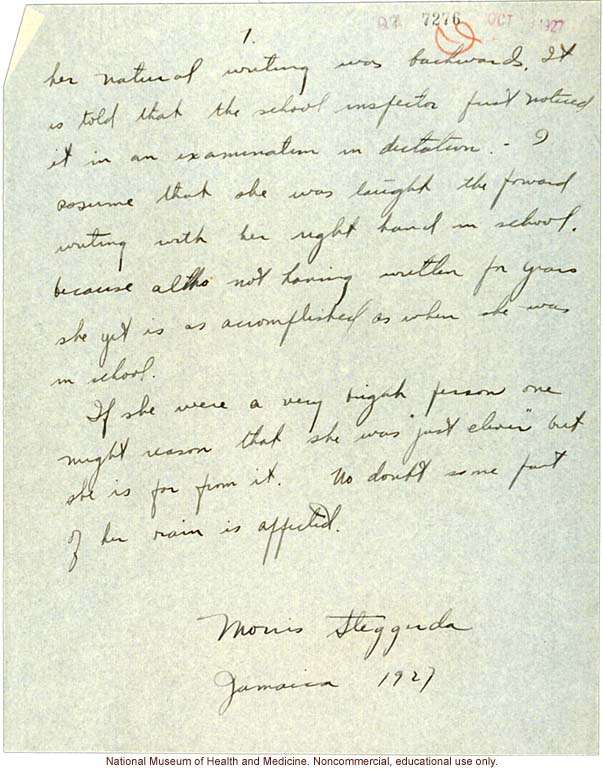 7276 OCT 1927
1.
her natural writing was backwards. It
is told that the school inspector first noticed
it in an examination in dictation. - I
assume that she was taught the forward
writing with her right hand in school.
because altho not having written for years
she yet is as accomplished as when she was
in school.
If she were a very bright person one
might reason that she was "just clever" but
she is far from it. No doubt some part
of her rain is affected.
Morris Steggerda
Jamaica 1927
National Museum of Health and Medicine. Noncommercial, educational use only.